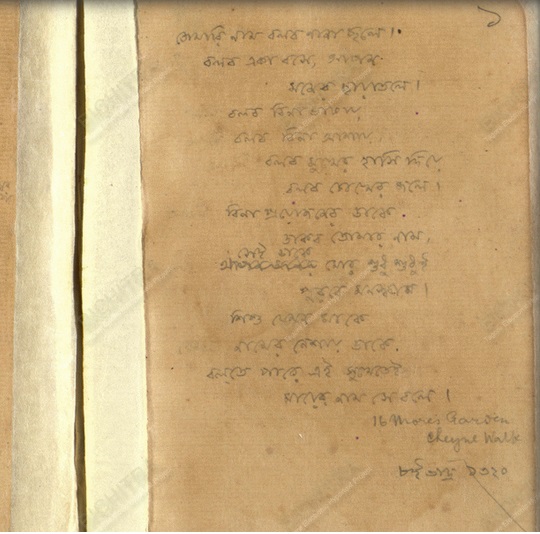 ১
তোমারি নাম বলব নানা ছলে।
বলব একা বসে, আপন
মনের ছায়াতলে।
বলব বিনা ভাষায়,
বলব বিনা আশায়,
বলব মুখের হাসি দিয়ে
বলব চোখের জলে।
বিনা প্রয়োজনের ডাকে
ডাকব তোমার নাম,
সেই ডাকে
মোর শুধু শুধুই
পুরবে মনস্কাম।
শিশু যেমন মাকে
নামের নেশায় ডাকে,
বলতে পারে এই সুখেতেই
মায়ের নাম সে বলে।
16 More's Garden
Cheyne Walk
৮ই ভাদ্র ১৩২০